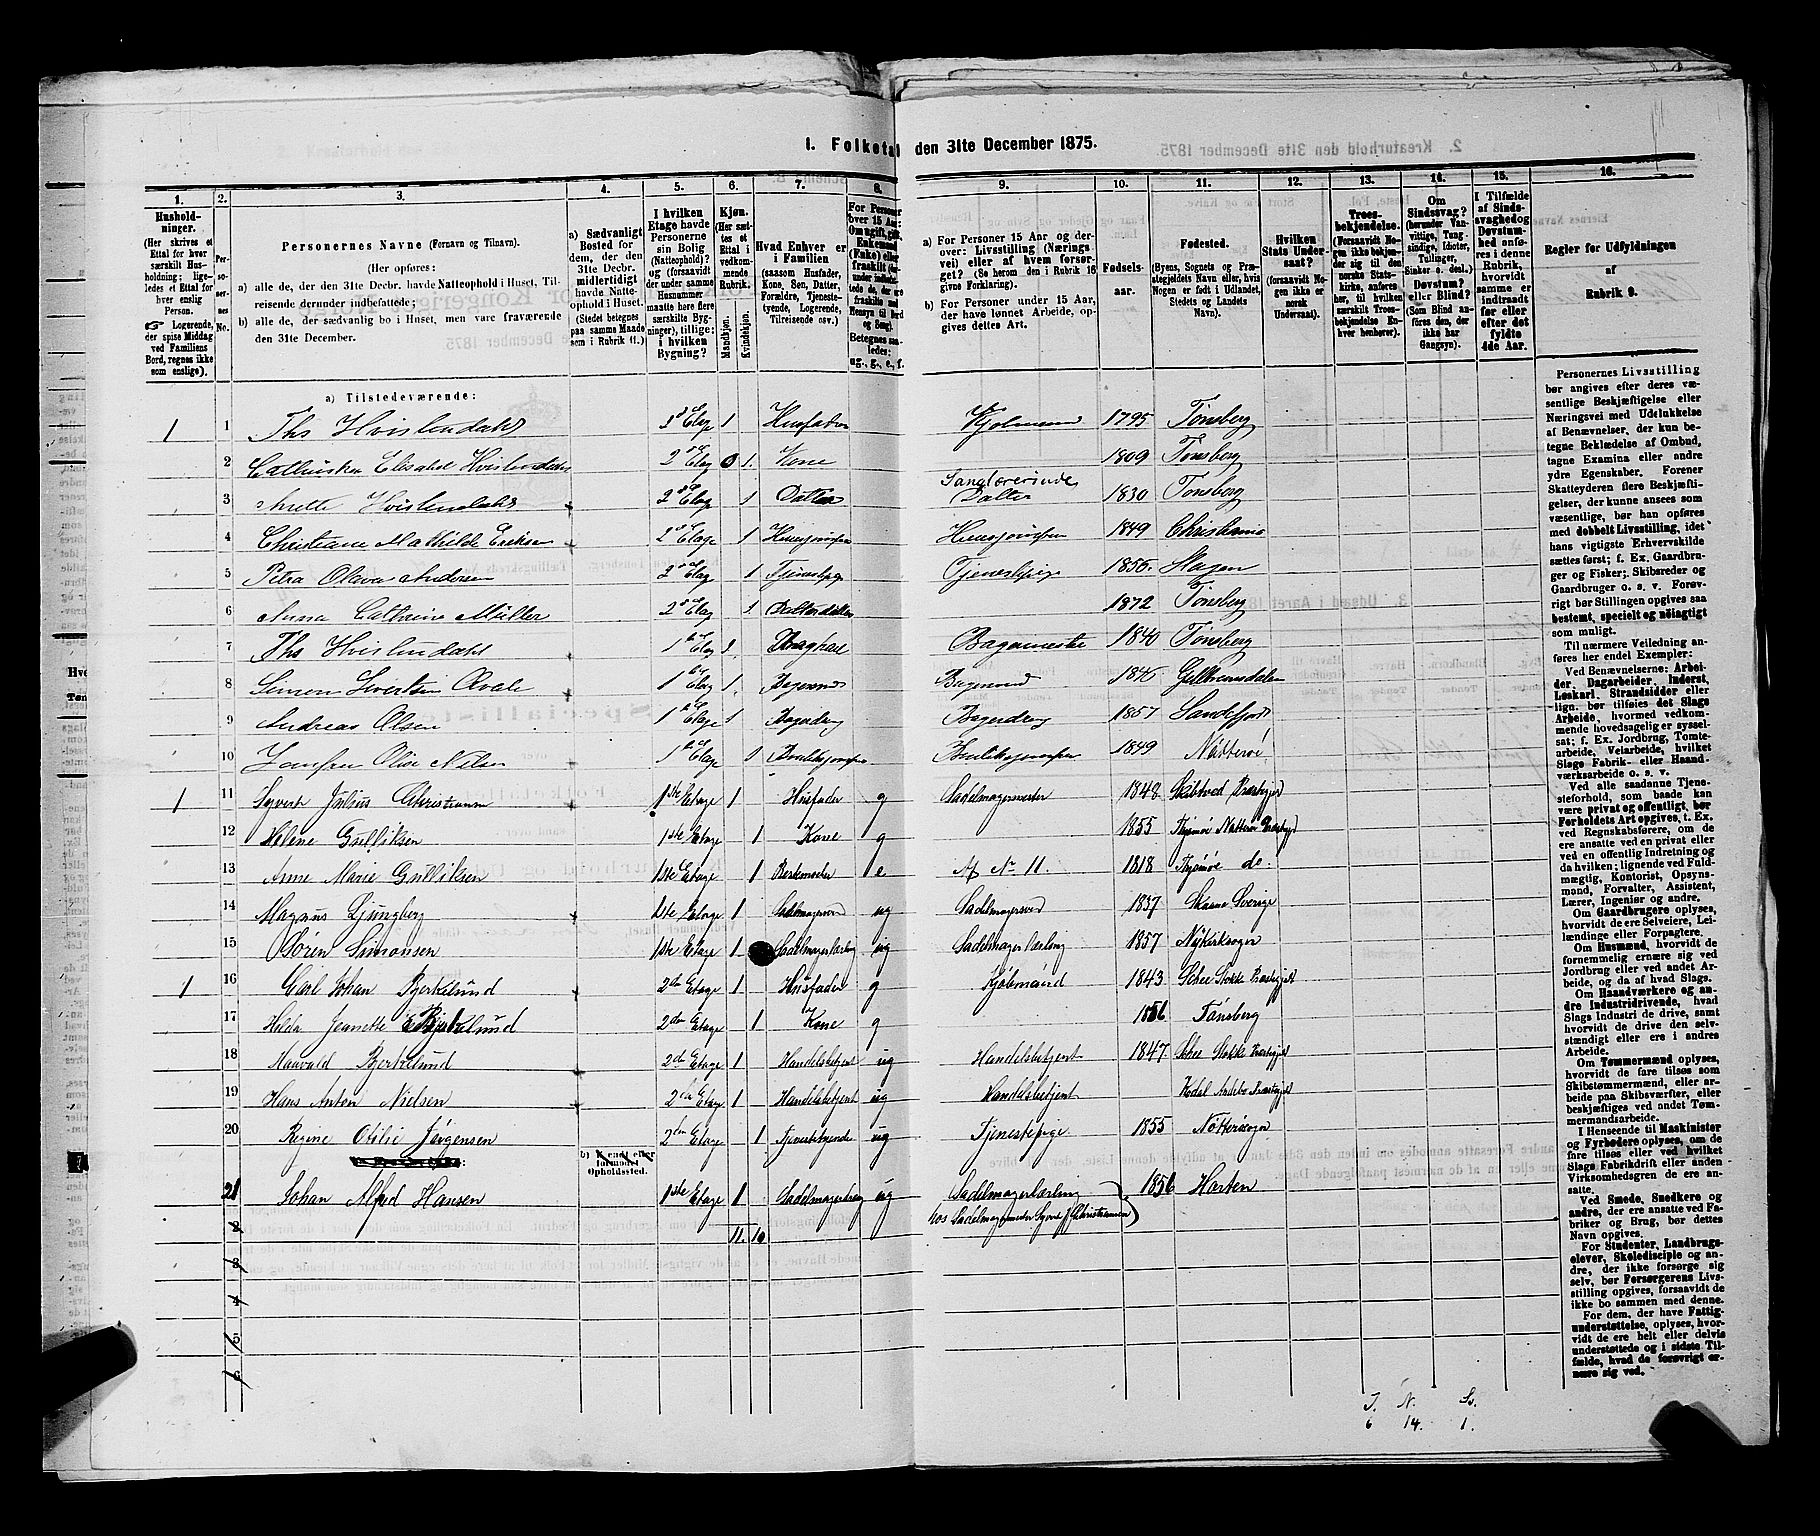 1. Folketal den 31te December 1875.
1. 2. 3. 4. 5. 6. 7. 8. 9. 10. 11. 12. 13. 14. 15. 16.
Hushold-
ninger.
(Her skrives et
Ettal for hver
særskilt Hus-
holdning; lige-
ledes et Ettal for
hver enslig
Person.
☞ Logerende,
der spise Middag
ved Familiens
Bord, regnes ikke
som enslige).
Per-
so-
ner-
nes
No.
Personernes Navne (Fornavn og Tilnavn).
(Her opføres:
a) alle de, der den 31te Decbr. havde Natteophold i Huset, Til-
reisende derunder indbefattede;
b) alle de, der sædvanlig bo i Huset, men vare fraværende
den 31te December.
a) Sædvanligt
Bosted for
dem, der den
31te Decbr.
midlertidigt
havde Natte-
ophold i Huset.
(Stedet betegnes
paa samme Maade
som i Rubrik 11.)
I hvilken
Etage havde
Personerne
sin Bolig
(Natteophold)?
og (forsaavidt
der under samme
Husnummer
maatte høre flere
særskilte Byg-
ninger), tillige:
i hvilken
Bygning?
Kjøn.
(Her sæt-
tes et
Ettal i
vedkom-
mende
Rubrik.)
Mandkjøn.
Kvindekjøn.
Hvad Enhver er
i Familien
(saasom Husfader,
Kone, Søn, Datter,
Forældre, Tjeneste-
tyende, Logerende,
Tilreisende osv.)
For Personer
over 15 Aar:
Om ugift, gift,
Enkemand
(Enke) eller
fraskilt
Betegnes saa-
ledes:
ug., g., e., f.
a) For Personer 15 Aar og der-
over: Livsstilling (Nærings-
vei) eller af hvem forsør-
get? (Se herom den i Rubrik 16
givne Forklaring).
b) For Personer under 15 Aar,
der have lønnet Arbeide, op-
gives dettes Art.
Fødsels-
aar.
Fødested.
(Byens, Sognets og Præ-
stegjeldets Navn eller, hvis
Nogen er født i Udlandet,
Stedets og Landets
Navn).
Hvilken
Stats Under-
saat?
(forsaavidt No-
gen ikke er
norsk
Undersaat).
Troes-
bekjendelse.
(Forsaavidt No-
gen ikke beken-
der sig til den
norske Stats-
kirke, anføres
her, til hvilket
Troesbekjendelse En-
hver henhører).
Om
Sindssvag?
(herunder Van-
vittige, Tung-
sindige, Idioter,
Tullinger,
Sinker o. desl.)
Døvstum?
eller Blind?
(Som Blind an-
føres den, der
ikke har
Gangsyn).
I Tilfælde
af Sinds-
svaghed og
Døvstum-
hed anfø-
res i denne
Rubrik,
hvorvidt
samme er
indtraadt
før eller
efter det
fyldte
4de Aar.
Regler for Udfyldningen
af
Rubrik 9.
a) Tilstedeværende:
1 1 Ths Hvistendahl 2d Etage 1 Husfader Kjøbmand 1795 Tønsberg
2 Cathrine Elisabet Hvistendahl 2d Etag 0 1. Kone 1809 Tønsberg
3 Anette Hvistendahl 2d Etag 1 Datter Sanglærerinde Datter 1830 Tønsberg
4 Christiane Mathilde Eriksen 2d Etage 1 Husjomfru Husjomfru 1849 Christiania
5 Petra Olava Andersen 2d Etag 1 Tjenestepige Tjenestepige 1856. Hagen
6 Anna Cathrine Müller 2d Etag 1. Datterdatter 1872 Tønsberg
7 Ths Hvistendahl 1ste Etag 1. Bagermester 1840 Tønsberg
8 Simon Sivertsen Qvale 1 Etag 1. Bagersvend Bagersvend 1846 Gulbransdalen
9 Andreas Olsen 1 Etage 1 Bagerdreng Bagerdreng 1857 Sandefjord
10 Jomfru Olise Nilsen 1 Etage 0 Butiksjomfru Butiksjomfru 1849 Nøtterø
1 11 Syvert Julius Christiansen 1ste Etage 1 Husfader g Sadelmagermester 1848 Skibtved Præstegjeld
12 Helene Gulliksen 1ste Etage 1 Kone g 1855 Thjømø Nøtterø Præstegjeld
13 Anne Marie Gulliksen 1ste Etage 1 e Af No 11 1818 Thjømø do.
14 Magnus Ljungberg 1ste Etage 1 Sadelmagersvend ug Sadelmagersvend 1837 Skaane Sverige
15 Søren Simonsen 1ste Etage 1 Sadelmagerlærling ug Sadelmagerlærling 1857 Nykirksogn
1 16 Carl Johan Bjerkelund 2den Etage 1 Husfader g Kjøbmand 1843 Schee Stokke Præstegjeld
17 Hilda Jeanette Bjerkelund 2den Etage 1 Kone g 1856 Tønsberg
18 Haavald Bjerkelund 2de Etage 1 Handelsbetjent ug Handelsbetjent 1847 Schee Stokke Præstegjeld
19 Hans Anton Nielsen 2den Etage 1 Handelsbetjent ug Handelsbetjent Kodal Andebo Præstegjeld
20 Regine Otilie Jørgensen 2den Etage 1 Tjenestetyende ug Tjenestepige 1855 Nøtterøsogn
b) Kjendt eller
formodet
Opholdssted.
21 Johan Alfred Hansen 1ste Etage 1 Sadelmagerdreng ug Sadelmagerlærling 1856 Horten
hos Sadelmagermester Syvert J Christiansen
2 11. 10
3
4
5
6
Personernes Livsstilling
bør angives efter deres væ-
sentlige Beskjæftigelse eller
Næringsvei med Udelukkelse
af Benævnelser, der kun be-
tegne Beklædelse af Ombud,
tagne Examina eller andre
ydre Egenskaber. Forener
Skatteyderen flere Beskjæfti-
gelser, der kunne ansees som
væsentlige, bør han opføres
med dobbelt Livsstilling, idet
hans vigtigste Erhvervskilde
sættes først; f. Ex. Gaardbru-
ger og Fisker; Skibsreder og
Gaardbruger o. s. v. Forøv-
rigt bør Stillingen opgives saa
bestemt, specielt og nøiagtigt
som muligt.
Til nærmere Veiledning an-
føres her endel Exempler:
Ved Benævnelserne: Arbei-
der, Dagarbeider, Inderst,
Løskarl, Strandsidder eller
lign. bør tilføies det Slags
Arbeide, hvormed vedkom-
mende hovedsagelig er syssel-
sat; f. Ex. Jordbrug, Tomte-
arbeide, Veiarbeide, hvilket
Slags Fabrik- eller Haand-
værksarbeide o. s. v.
Ved alle saadanne Tjene-
steforhold, som baade kan
være privat og offentligt, bør
Forholdets Art opgives, t. Ex.
ved Regnskabsførere, om de
ere ansatte ved en privat eller
ved en offentlig Indretning og
da hvilken; lignende ved Fuld-
mægtig, Kontorist, Opsyns-
mand, Forvalter, Assistent,
Lærer, Ingeniør og andre.
Om Gaardbrugere oplyses,
hvorvidt de ere Selveiere, Lei-
lændinge eller Forpagtere.
Om Husmænd, hvorvidt de
fornemmelig ernære sig ved
Jordbrug eller ved andet Ar-
beide, og da af hvad Slags.
Om Haandværkere og an-
dre Industridrivende, hvad
Slags Industri de drive, samt
hvorvidt de drive den selv-
stændigt eller ere i andres
Arbeide.
Om Tømmermænd oplyses,
hvorvidt de fare tilsøs som
Skibstømmermænd, eller ar-
beide paa Skibsværfter, eller
beskjæftiges ved andet Tøm-
mermandsarbeide.
I Henseende til Maskinister
og Fyrbødere oplyses, om de
fare tilsøs eller ved hvilket
Slags Fabrikdrift eller anden
Virksomhedsgren de ere an-
satte.
Ved Smede, Snedkere og
andre, der ere ansatte ved Fa-
briker og Brug, bør dettes
Navn opgives.
For Studenter, Landbrugs-
elever, Skoledisciple og an-
dre, der ikke forsørge sig
selv, bør Forsørgerens Livs-
stilling opgives, forsaavidt de
ikke bo sammen med denne.
For dem, der have Fattig-
understøttelse, oplyses, hvor-
vidt de ere helt eller delvis
understøttede og i sidste Til-
fælde, hvad de forøvrigt er-
nære sig ved.
J. N. Sv.
6 14. 1.